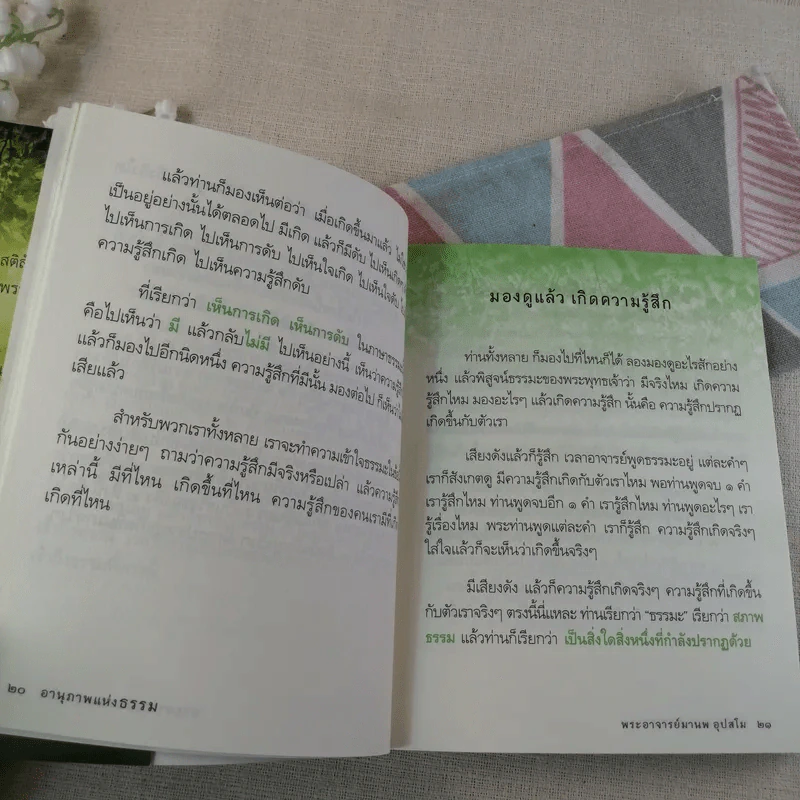 สติ
พระ
แล้วท่านก็มองเห็นต่อว่า เมื่อเกิดขึ้นมาแล้ว
เป็นอยู่อย่างนั้นได้ตลอดไป มีเกิด แล้วก็มีดับ ไปเห็นเกิด
ไปเห็นการเกิด ไปเห็นการดับ ไปเห็นใจเกิด ไปเห็นใจดับ
ความรู้สึกเกิด ไปเห็นความรู้สึกดับ
ที่เรียกว่า เห็นการเกิด เห็นการดับ ในภาษาธรรมะ
คือไปเห็นว่า มี แล้วกลับไม่มี ไปเห็นอย่างนี้ เห็นความรู้สึก
แล้วก็มองไปอีกนิดหนึ่ง ความรู้สึกที่มีนั้น มองต่อไป ก็เห็น
เสียแล้ว
สำหรับพวกเราทั้งหลาย เราจะทำความเข้าใจธรรมะ
กันอย่างง่ายๆ ถามว่าความรู้สึกมีจริงหรือเปล่า แล้วความรู้สึก
เหล่านี้ มีที่ไหน เกิดขึ้นที่ไหน ความรู้สึกของคนเรามีที่
เกิดที่ไหน
๒๐ อานุภาพแห่งธรรม
มองดูแล้ว เกิดความรู้สึก
ท่านทั้งหลาย ก็มองไปที่ไหนก็ได้ ลองมองดูอะไรสักอย่าง
หนึ่ง แล้วพิสูจน์ธรรมะของพระพุทธเจ้าว่า มีจริงไหม เกิดความ
รู้สึกไหม มองอะไรๆ แล้วเกิดความรู้สึก นั้นคือ ความรู้สึกปรากฏ
เกิดขึ้นกับตัวเรา
เสียงดังแล้วก็รู้สึก เวลาอาจารย์พูดธรรมะอยู่ แต่ละคำๆ
เราก็สังเกตดู มีความรู้สึกเกิดกับตัวเราไหม พอท่านพูดจบ ๑ คำ
เรารู้สึกไหม ท่านพูดจบอีก ๑ คำ เรารู้สึกไหม ท่านพูดอะไรๆ เรา
รู้เรื่องไหม พระท่านพูดแต่ละคำ เราก็รู้สึก ความรู้สึกเกิดจริงๆ
ใส่ใจแล้วก็จะเห็นว่าเกิดขึ้นจริงๆ
มีเสียงดัง แล้วก็ความรู้สึกเกิดจริงๆ ความรู้สึกที่เกิดขึ้น
กับตัวเราจริงๆ ตรงนี้นี่แหละ ท่านเรียกว่า "ธรรมะ" เรียกว่า สภาพ
ธรรม แล้วท่านก็เรียกว่า เป็นสิ่งใดสิ่งหนึ่งที่กำลังปรากฏด้วย
พระอาจารย์มานพ อุปสโม ๒๑